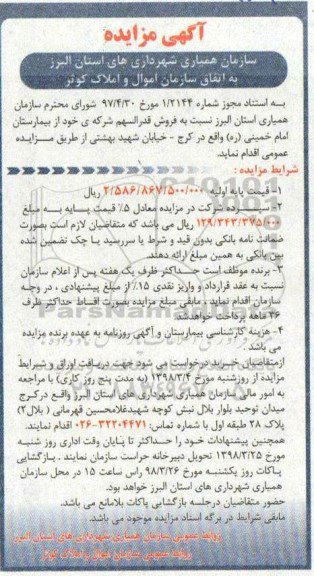 آگهی مزایده
سازمان همیاری شهرداری های استان البرز
به اتفاق سازمان اموال و املاک کوثر
به استناد مجوز شماره ۱/۲۱۴۴ مورخ ۹۷/۴/۳۰ شورای محترم سازمان
همیاری استان البرز نسبت به فروش قدرالسهم شرکه ی خود از بیمارستان
امام خمینی (ره) واقع در کرج - خیابان شهید بهشتی از طریق مزایده
عمومی اقدام نماید.
شرایط مزایده :
۱- قیمت پایه اولیه ۲/۵۸۶/۸۶۷/۵۰۰/۰۰۰ ریال
۲- سپرده شرکت در مزایده معادل ۵٪ قیمت پایه به مبلغ
۱۲۹/۳۴۳/۳۷۵/۰۰۰ ریال می باشد که متقاضیان لازم است بصورت
ضمانت نامه بانکی بدون قید و شرط یا سررسید یا چک تضمین شده
بین بانکی به همین مبلغ ارائه دهند.
۳- برنده موظف است حداکثر ظرف یک هفته پس از اعلام سازمان
نسبت به عقد قرارداد و واریز نقدی ۱۵٪ از مبلغ پیشنهادی ، در وجه
سازمان اقدام نماید و مابقی مبلغ مزایده بصورت اقساط حداکثر ظرف
۳۶ ماهه پرداخت خواهدشد.
۴- هزینه کارشناسی بیمارستان و آگهی روزنامه به عهده برنده مزایده
می باشد
ازمتقاضیان خرید درخواست می شود جهت دریافت اوراق و شرایط
مزایده از روزشنبه مورخ ۱۳۹۸/۳/۴ (به مدت پنج روز کاری) با مراجعه
به امور مالی سازمان همیاری شهرداری های استان البرز واقع درکرج
میدان توحید بلوار بلال نبش کوچه شهیدغلامحسین قهرمانی ( بلال ۲)
پلاک ۲۸ طبقه اول با شماره تماس: ۳۲۲۰۴۴۷۱-۰۲۶ اقدام نمایند.
همچنین پیشنهادات خود را حداکثر تا پایان وقت اداری روز شنبه
مورخ ۱۳۹۸/۳/۲۵ تحویل دبیرخانه حراست سازمان نمایند . بازگشایی
پاکات روز یکشنبه مورخ ۹۸/۳/۲۶ راس ساعت ۱۵ در محل سازمان
همیاری شهرداری های استان البرز خواهد بود.
حضور متقاضیان درجلسه بازگشایی پاکات بلامانع می باشد.
مابقی شرایط در برگه اسناد مزایده موجود می باشد.
روابط عمومی سازمان همیاری شهرداری های استان البرز
روابط عمومی سازمان اموال و املاک کوثر